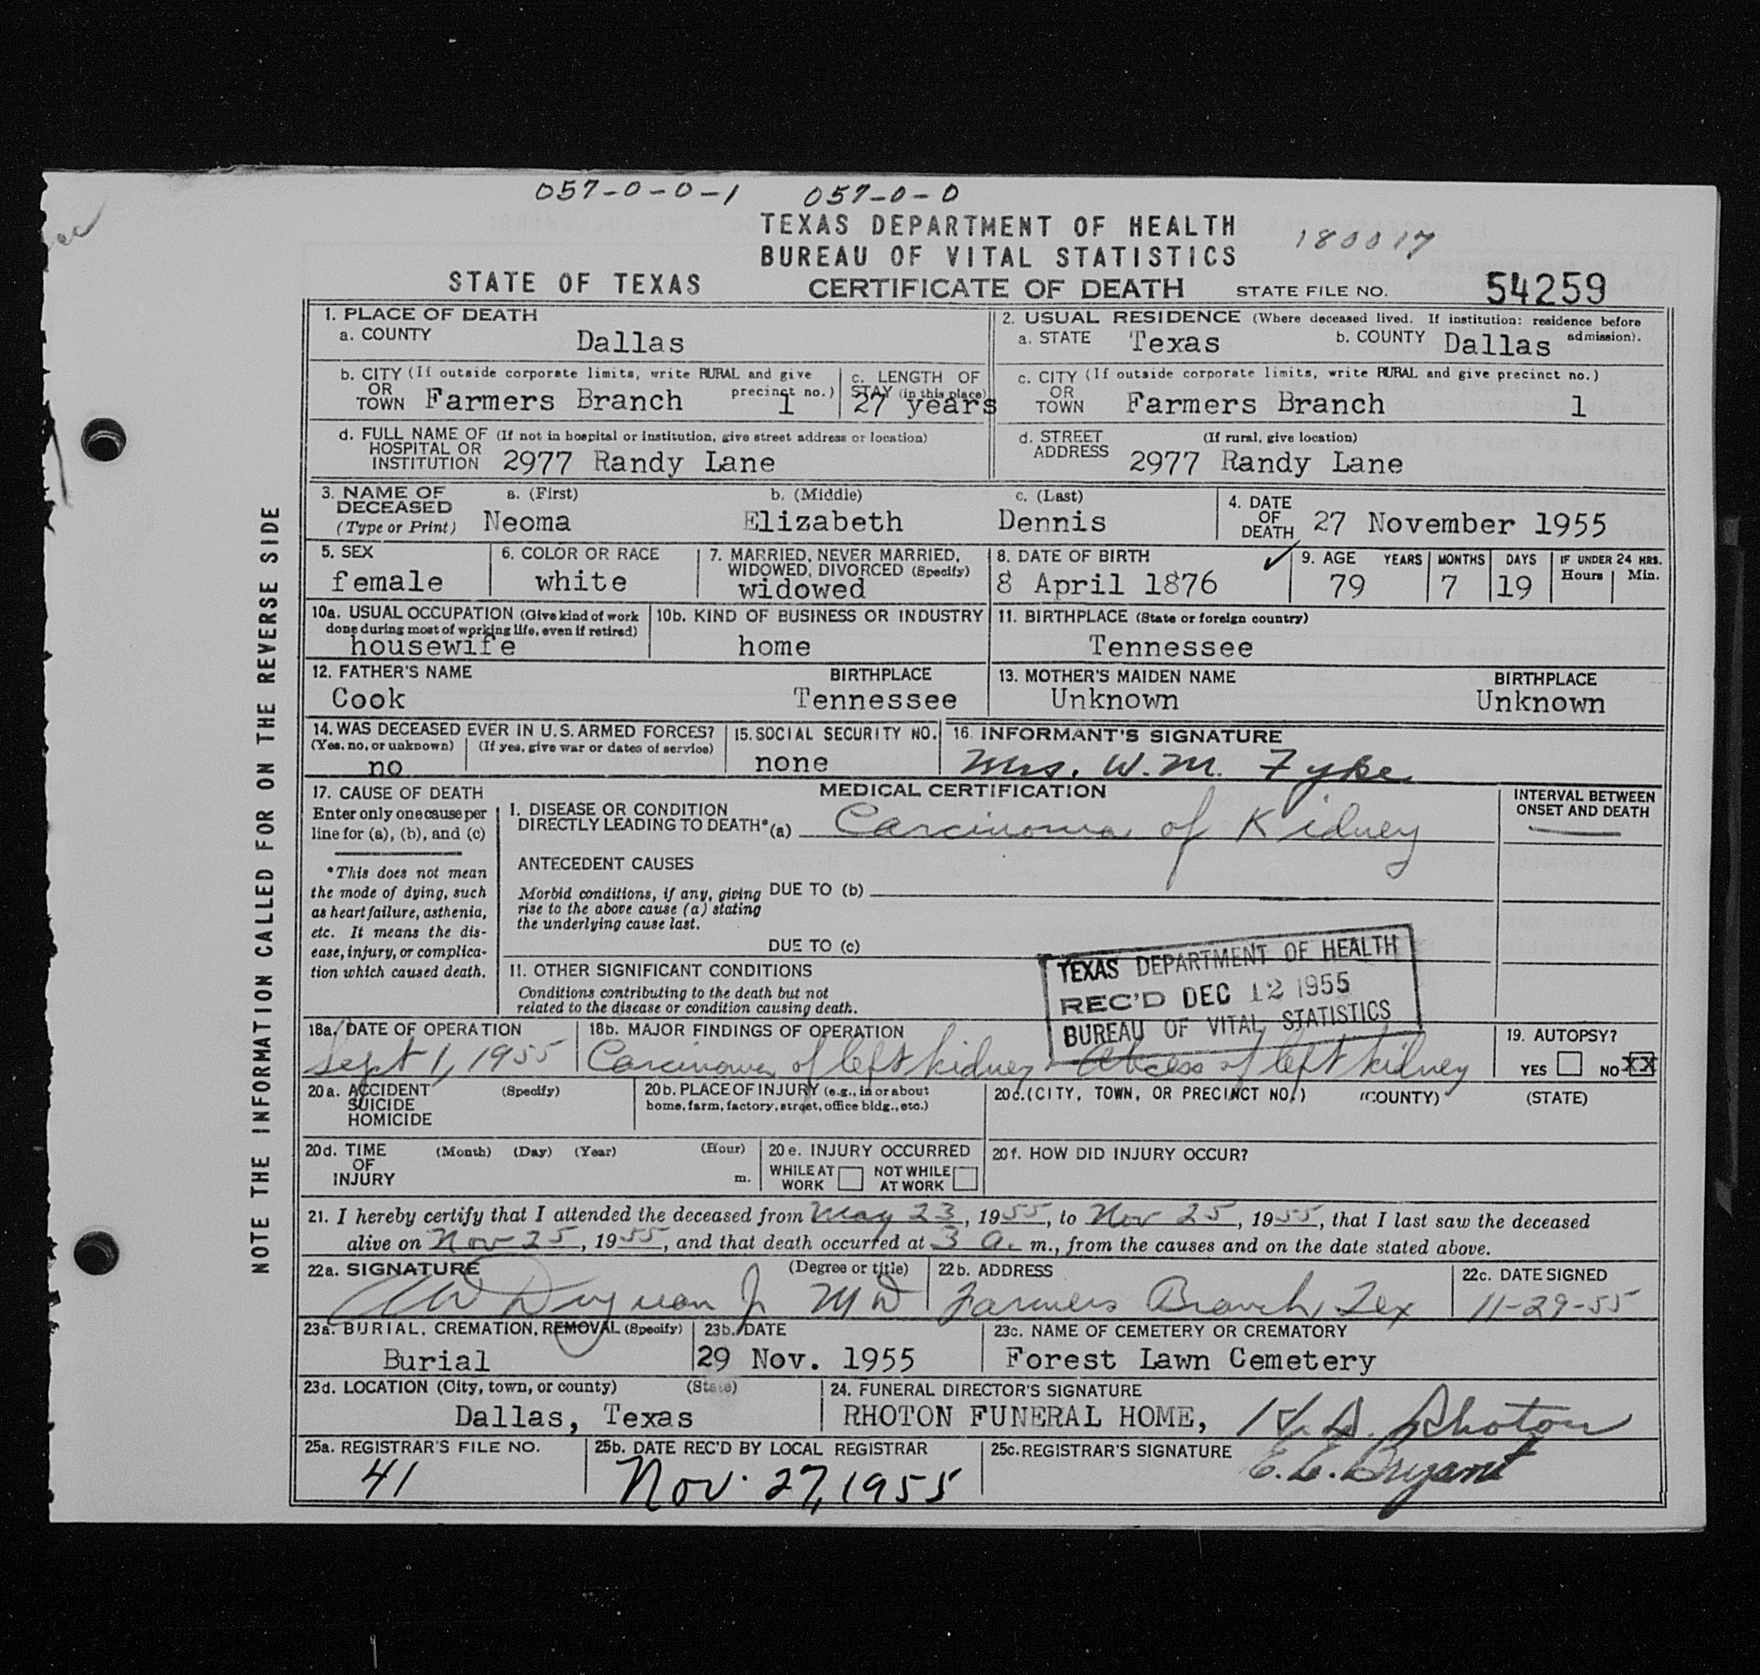 057-0-0-1 057-0-0
TEXAS DEPARTMENT OF HEALTH
BUREAU OF VITAL STATISTICS
180017
STATE OF TEXAS CERTIFICATE OF DEATH STATE FILE NO. 54259
1. PLACE OF DEATH
a. COUNTY Dallas
2. USUAL RESIDENCE (Where deceased lived. If institution: residence before admission).
a. STATE Texas b. COUNTY Dallas
b. CITY (If outside corporate limits, write RURAL and give precinct no.)
OR
TOWN Farmers Branch 1
c. LENGTH OF
STAY (in this place)
27 years
c. CITY (If outside corporate limits, write RURAL and give precinct no.)
OR
TOWN Farmers Branch 1
d. FULL NAME OF (If not in hospital or institution, give street address or location)
HOSPITAL OR
INSTITUTION 2977 Randy Lane
d. STREET (If rural, give location)
ADDRESS 2977 Randy Lane
3. NAME OF
DECEASED
(Type or Print)
a. (First) Neoma
b. (Middle) Elizabeth
c. (Last) Dennis
4. DATE
OF
DEATH 27 November 1955
5. SEX
female
6. COLOR OR RACE
white
7. MARRIED, NEVER MARRIED,
WIDOWED, DIVORCED (Specify)
widowed
8. DATE OF BIRTH
8 April 1876
9. AGE YEARS MONTHS DAYS IF UNDER 24 HRS.
Hours Min.
79 7 19
10a. USUAL OCCUPATION (Give kind of work
done during most of working life, even if retired)
housewife
10b. KIND OF BUSINESS OR INDUSTRY
home
11. BIRTHPLACE (State or foreign country)
Tennessee
12. FATHER'S NAME BIRTHPLACE
Cook Tennessee
13. MOTHER'S MAIDEN NAME BIRTHPLACE
Unknown Unknown
14. WAS DECEASED EVER IN U.S. ARMED FORCES?
(Yes, no, or unknown) (If yes, give war or dates of service)
no
15. SOCIAL SECURITY NO.
none
16. INFORMANT'S SIGNATURE
Mrs. W. M. Fyke
17. CAUSE OF DEATH
Enter only one cause per
line for (a), (b), and (c)
*This does not mean
the mode of dying, such
as heart failure, asthenia,
etc. It means the dis-
ease, injury, or complica-
tion which caused death.
MEDICAL CERTIFICATION
INTERVAL BETWEEN
ONSET AND DEATH
I. DISEASE OR CONDITION
DIRECTLY LEADING TO DEATH* (a) Carcinoma of Kidney
ANTECEDENT CAUSES
Morbid conditions, if any, giving
rise to the above cause (a) stating
the underlying cause last.
DUE TO (b)
DUE TO (c)
II. OTHER SIGNIFICANT CONDITIONS
Conditions contributing to the death but not
related to the disease or condition causing death.
TEXAS DEPARTMENT OF HEALTH
REC'D DEC 12 1955
BUREAU OF VITAL STATISTICS
18a. DATE OF OPERATION
Sept 1, 1955
18b. MAJOR FINDINGS OF OPERATION
Carcinoma of left kidney - Abcess of left kidney
19. AUTOPSY?
YES NO XX
20a. ACCIDENT (Specify)
SUICIDE
HOMICIDE
20b. PLACE OF INJURY (e.g., in or about
home, farm, factory, street, office bldg., etc.)
20c. (CITY, TOWN, OR PRECINCT NO.) (COUNTY) (STATE)
20d. TIME (Month) (Day) (Year) (Hour)
OF
INJURY m.
20e. INJURY OCCURRED
WHILE AT WORK NOT WHILE AT WORK
20f. HOW DID INJURY OCCUR?
21. I hereby certify that I attended the deceased from May 23, 1955, to Nov 25, 1955, that I last saw the deceased
alive on Nov 25, 1955, and that death occurred at 3 a. m., from the causes and on the date stated above.
22a. SIGNATURE (Degree or title)
Jr MD
22b. ADDRESS
Farmers Branch, Tex
22c. DATE SIGNED
11-29-55
23a. BURIAL, CREMATION, REMOVAL (Specify)
Burial
23b. DATE
29 Nov. 1955
23c. NAME OF CEMETERY OR CREMATORY
Forest Lawn Cemetery
23d. LOCATION (City, town, or county) (State)
Dallas, Texas
24. FUNERAL DIRECTOR'S SIGNATURE
RHOTON FUNERAL HOME, Rhoton
25a. REGISTRAR'S FILE NO.
41
25b. DATE REC'D BY LOCAL REGISTRAR
Nov. 27, 1955
25c. REGISTRAR'S SIGNATURE
E. E. Bryant
NOTE THE INFORMATION CALLED FOR ON THE REVERSE SIDE